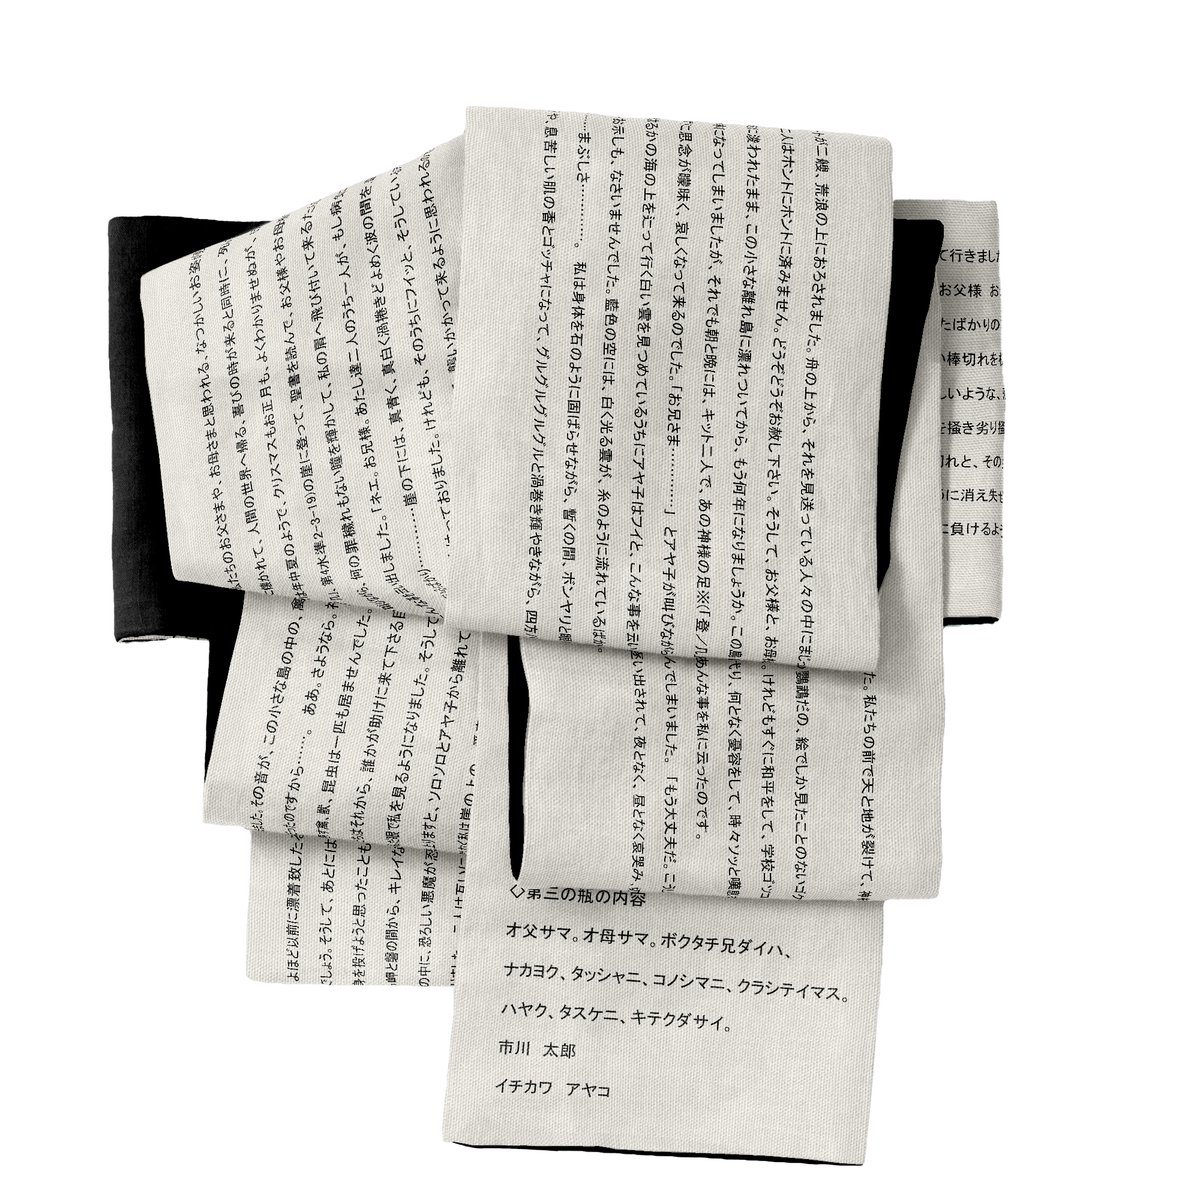 が二艘、荒浪の上におろされました。舟の上から、それを見送っている人々の中にまじ
二人はホントにホントに済みません。どうぞどうぞお赦し下さい。そうして、お父様と、お母
に漂われたまま、この小さな離れ島に漂れついてから、もう何年になりましょうか。この島
になってしまいましたが、それでも朝と晩には、キット二人で、あの神様の足※(「登/几
に思念が朦朧く、哀しくなって来るのでした。「お兄さま…………」とアヤ子が叫びながら
はるかの海の上を辷って行く白い雲を見つめているうちにアヤ子はフイと、こんな事を云い
お示しも、なさいませんでした。藍色の空には、白く光る雲が、糸のように流れているばか
……まぶしさ…………。私は身体を石のように固ばらせながら、暫くの間、ボンヤリと眼
や、息苦しい肌の香とゴッチャになって、グルグルグルグルと渦巻き輝やきながら、四方
た。私たちの前で天と地が裂けて、神
鸚鵡だの、絵でしか見たことのないゴク
けれどもすぐに和平をして、学校ゴッコ
代り、何となく憂容をして、時々ソッと嘆
あんな事を私に云ったのです。
んでしまいました。「もう大丈夫だ。こう
思い出されて、夜となく、昼となく哀哭み
私たちのお父さまや、お母さまと思われる、なつかしいお姿
に懐かれて、人間の世界へ帰る、喜びの時が来ると同時に、死
年中夏のようで、クリスマスもお正月も、よくわかりませぬが、
第4水準2-3-19)の崖に登って、聖書を読んで、お父様やお母
何の罪穢れもない瞳を輝かして、私の肩へ飛び付いて来るた
出しました。「ネエ。お兄様。あたし達二人のうち一人が、もし病
…………崖の下には、真青く、真白く渦捲きどよめく波の間を
はっておりました。けれども、そのうちにフイッと、そうしている
襲いかかって来るように思われるの
ました。その音が、この小さな島の中の、禽
のですから……。ああ。さようなら。
禽、獣、昆虫は一匹も居ませんでした。
はそれから、誰かが助けに来て下さる
眼で私を見るようになりました。そうして
ますと、ソロソロとアヤ子から離れて
よほど以前に漂着致したそ
でしょう。そうして、あとには
身を投げようと思ったことも
岬と磐の間から、キレイな
の中に、恐ろしい悪魔が忍
て行きました
お父様 お
たばかりの
い棒切れを
しいような、
掻き劣り
切れと、その
に消え失せ
に負けるよ
◇第三の瓶の内容
オ父サマ。オ母サマ。ボクタチ兄ダイハ、
ナカヨク、タッシャニ、コノシマニ、クラシテイマス。
ハヤク、タスケニ、キテクダサイ。
市川 太郎
イチカワ アヤコ